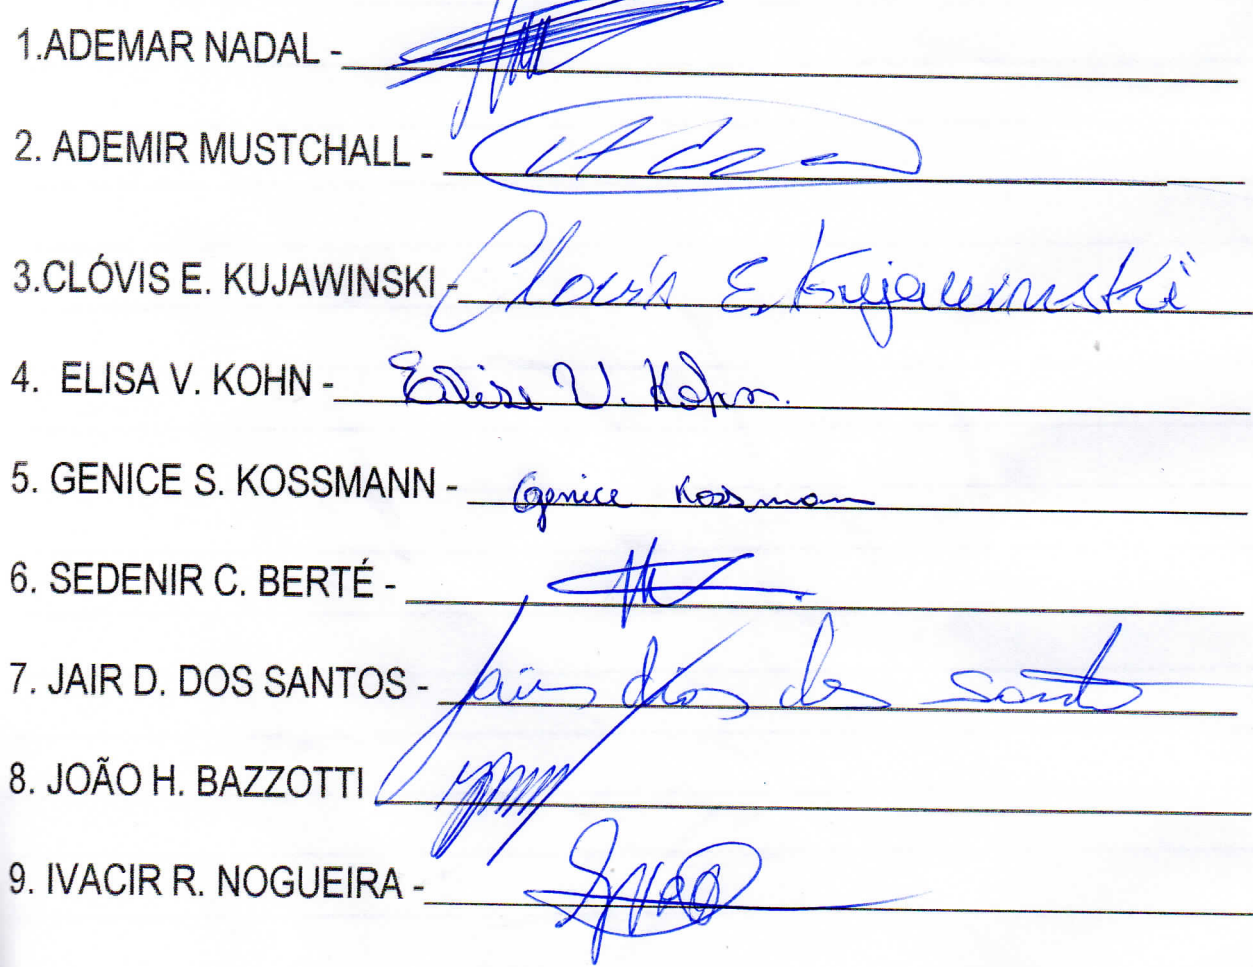 1.ADEMAR NADAL -
2. ADEMIR MUSTCHALL -
3.CLÓVIS E. KUJAWINSKI - Clovis E. Kujawinski
4. ELISA V. KOHN - Elisa V. Kohn.
5. GENICE S. KOSSMANN - Genice Kossmann
6. SEDENIR C. BERTÉ -
7. JAIR D. DOS SANTOS - jair dias dos santos
8. JOÃO H. BAZZOTTI
9. IVACIR R. NOGUEIRA -